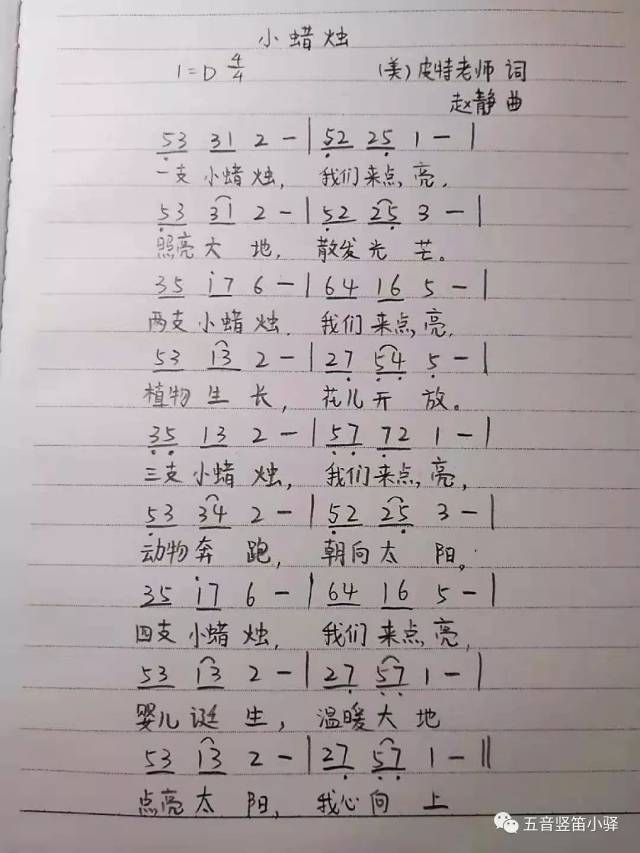 小蜡烛
1=D 4/4 (美)皮特老师 词
赵静 曲
53 31 2 - | 52 25 1 - |
一支 小蜡 烛, 我们 来点 亮,
53 31 2 - | 52 25 3 - |
照亮 大 地, 散发 光 芒。
35 i7 6 - | 64 16 5 - |
两支 小蜡 烛, 我们 来点 亮,
53 13 2 - | 27 54 5 - |
植物 生 长, 花儿 开 放。
35 13 2 - | 57 72 1 - |
三支 小蜡 烛, 我们 来点 亮,
53 34 2 - | 52 25 3 - |
动物 奔 跑, 朝向 太 阳。
35 i7 6 - | 64 16 5 - |
四支 小蜡 烛, 我们 来点 亮,
53 13 2 - | 27 57 1 - |
婴儿 诞 生, 温暖 大 地
53 13 2 - | 27 57 1 - ‖
点亮 太 阳, 我心 向 上
五音竖笛小驿